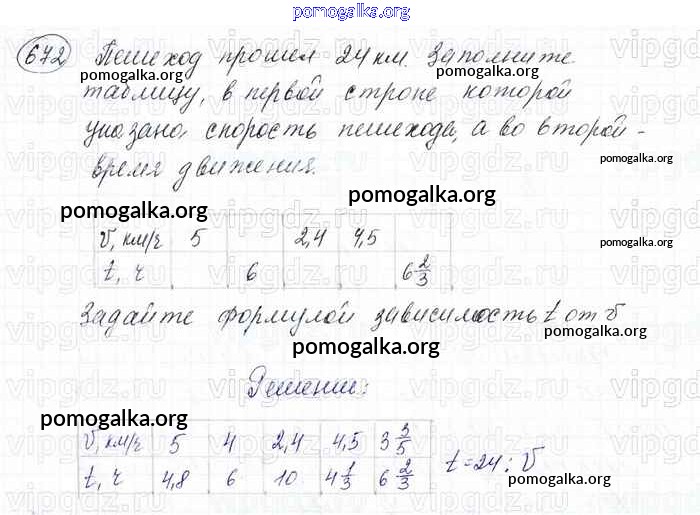 pomogalka.org
672 Пешеход прошел 24 км. Заполните
pomogalka.org pomogalka.org
таблицу, в первой строке которой
pomogalka.org
указана скорость пешехода, а во второй -
pomogalka.org
время движения.
pomogalka.org
pomogalka.org
v, км/ч 5 2,4 4,5
pomogalka.org
t, ч 6 6 2/3
Задайте формулой зависимость t от v
pomogalka.org
Решение:
pomogalka.org
v, км/ч 5 4 2,4 4,5 3 3/5
t = 24 : v
t, ч 4,8 6 10 4 1/3 6 2/3
pomogalka.org
pomogalka.org